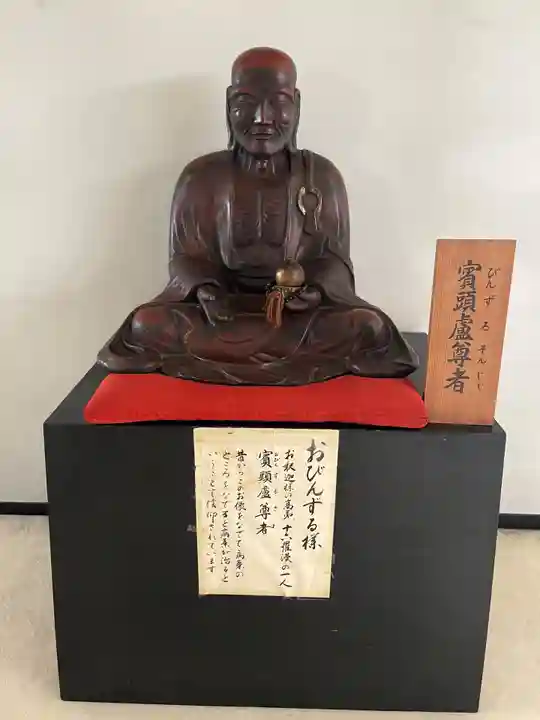 賓頭盧尊者
びんずるそんじゃ
おびんずる様
お釈迦様の高弟 十六羅漢の一人
賓頭盧尊者
昔からこのお像をなでて病気の
ところをなでると病気が治ると
いうことで信仰されています